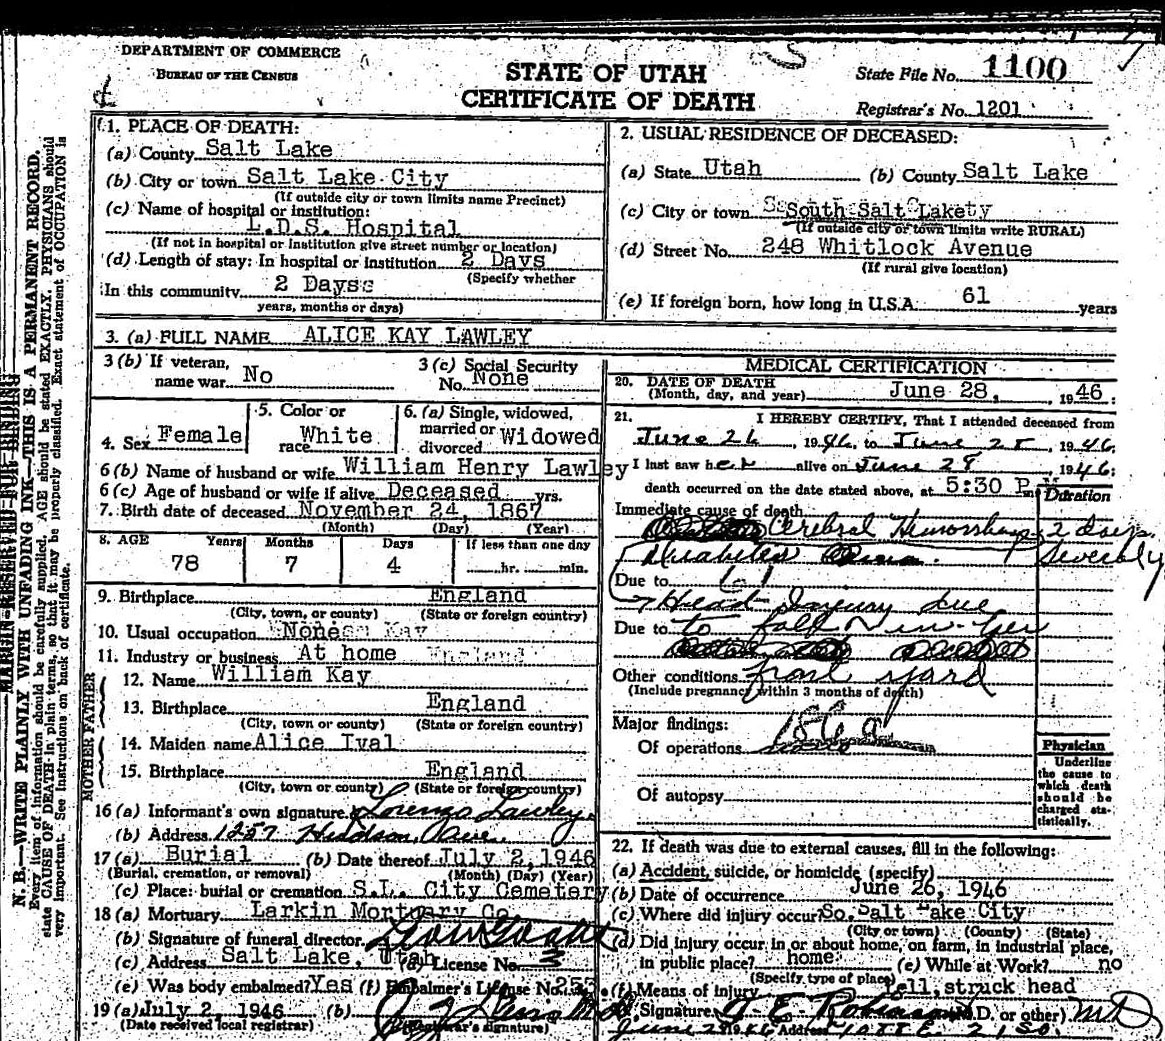 DEPARTMENT OF COMMERCE
BUREAU OF THE CENSUS
STATE OF UTAH
CERTIFICATE OF DEATH
State File No. 1100
Registrar's No. 1201
MARGIN RESERVED FOR BINDING
N. B.—WRITE PLAINLY WITH UNFADING INK—THIS IS A PERMANENT RECORD.
Every item of information should be carefully supplied. AGE should be stated EXACTLY. PHYSICIANS should
state CAUSE OF DEATH in plain terms, so that it may be properly classified. Exact statement of OCCUPATION is
very important. See instructions on back of certificate.
1. PLACE OF DEATH:
(a) County Salt Lake
(b) City or town Salt Lake City
(If outside city or town limits name Precinct)
(c) Name of hospital or institution:
L.D.S. Hospital
(If not in hospital or institution give street number or location)
(d) Length of stay: In hospital or institution 2 Days
(Specify whether
In this community 2 Days
years, months or days)
2. USUAL RESIDENCE OF DECEASED:
(a) State Utah (b) County Salt Lake
(c) City or town South Salt Lake
(If outside city or town limits write RURAL)
(d) Street No. 248 Whitlock Avenue
(If rural give location)
(e) If foreign born, how long in U.S.A. 61 years
3. (a) FULL NAME ALICE KAY LAWLEY
3 (b) If veteran,
name war No
3 (c) Social Security
No. None
4. Sex Female
5. Color or
race White
6. (a) Single, widowed,
married or
divorced Widowed
6 (b) Name of husband or wife William Henry Lawley
6 (c) Age of husband or wife if alive Deceased yrs.
7. Birth date of deceased November 24, 1867
(Month) (Day) (Year)
8. AGE Years Months Days If less than one day
78 7 4 hr. min.
9. Birthplace England
(City, town, or county) (State or foreign country)
10. Usual occupation None
11. Industry or business At home
MOTHER FATHER
12. Name William Kay
13. Birthplace England
(City, town or county) (State or foreign country)
14. Maiden name Alice Ival
15. Birthplace England
(City, town or county) (State or foreign country)
16 (a) Informant's own signature Lorenzo Lawley
(b) Address 1257 Hudson Ave.
17 (a) Burial (b) Date thereof July 2, 1946
(Burial, cremation, or removal) (Month) (Day) (Year)
(c) Place: burial or cremation S.L. City Cemetery
18 (a) Mortuary Larkin Mortuary Co
(b) Signature of funeral director
(c) Address Salt Lake, Utah (d) License No. 3
(e) Was body embalmed? Yes (f) Embalmer's License No.
19 (a) July 2, 1946 (b)
(Date received local registrar) (Registrar's signature)
MEDICAL CERTIFICATION
20. DATE OF DEATH
(Month, day, and year) June 28, 1946
21. I HEREBY CERTIFY, That I attended deceased from
June 26, 1946 to June 28, 1946
I last saw her alive on June 28, 1946;
death occurred on the date stated above, at 5:30 P.M.
Duration
Immediate cause of death
Cerebral Hemorrhage 2 days
Diabetes
Due to
Head Injury due
Due to to fall in
Other conditions front yard
(Include pregnancy within 3 months of death)
Major findings: 186a
Of operations
Of autopsy
Physician
Underline
the cause to
which death
should be
charged sta-
tistically.
22. If death was due to external causes, fill in the following:
(a) Accident, suicide, or homicide (specify)
(b) Date of occurrence June 26, 1946
(c) Where did injury occur So. Salt Lake City
(City or town) (County) (State)
(d) Did injury occur in or about home, on farm, in industrial place,
in public place? home (e) While at Work? no
(Specify type of place)
(f) Means of injury fell, struck head
Signature E. Robinson (M.D. or other) MD
Address